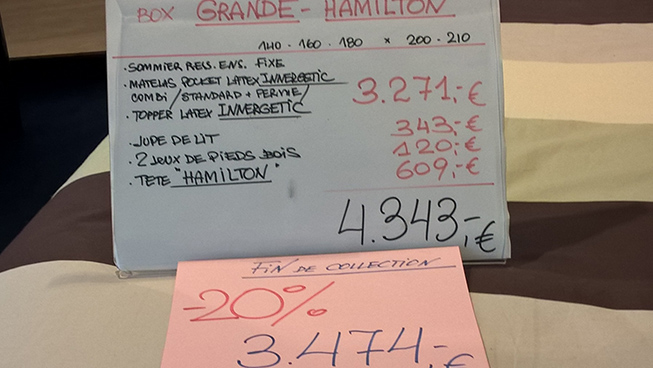 BOX GRANDE - HAMILTON
140 . 160 . 180 x 200 - 210
. SOMMIER RELS. ENS. FIXE
. MATELAS POCKET LATEX INNERGETIC 3.271,-€
COMBI / STANDARD + FERME /
. TOPPER LATEX INNERGETIC
. JUPE DE LIT 343,-€
. 2 JEUX DE PIEDS BOIS 120,-€
. TETE "HAMILTON" 609,-€
4.343,-€
FIN DE COLLECTION
-20%
3.474,-€